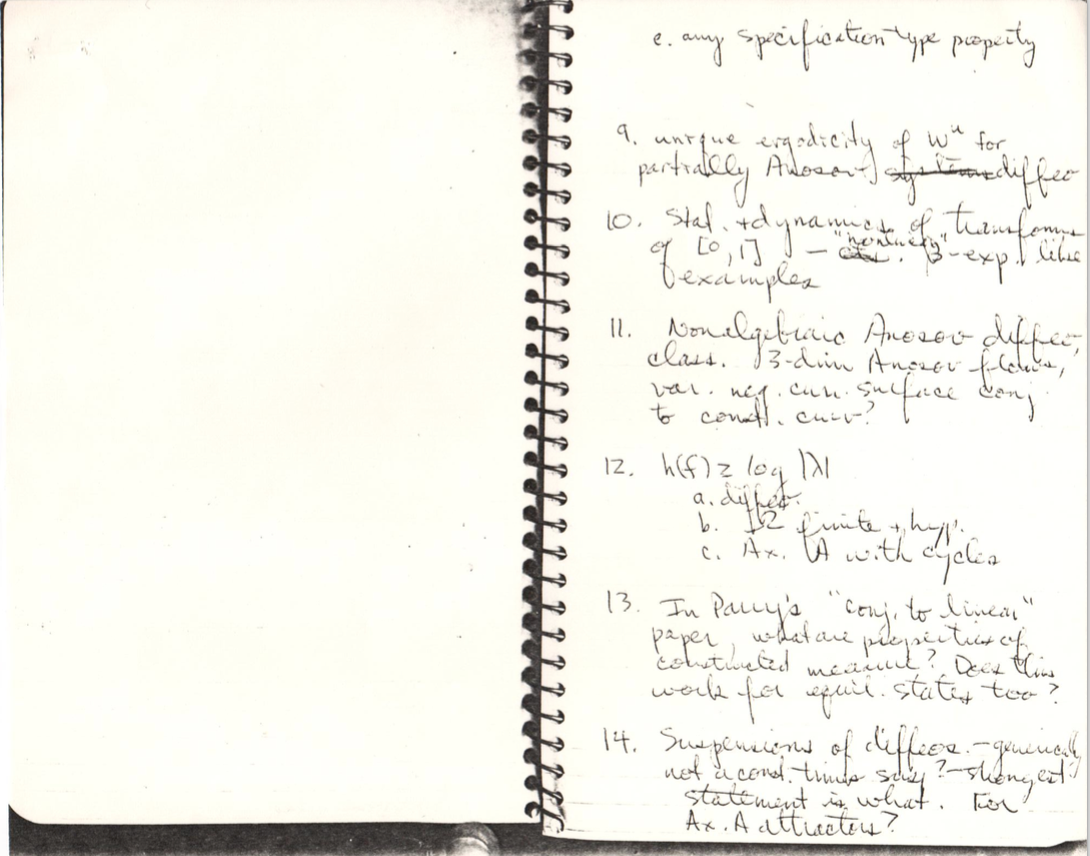 e. any specification type property
9. unique ergodicity of Wᵘ for
partially Anosov diffeo
10. Stat. + dynamics of transforms
of [0,1] — "nonlinear" β-exp. like
examples
11. Nonalgebraic Anosov diffeo,
class. 3-dim Anosov flows,
var. neg. curv. surface conj
to const. curv?
12. h(f) ≥ log |λ|
a. diffeo.
b. Ω finite + hyp.
c. Ax. A with cycles
13. In Parry's "conj. to linear"
paper, what are properties of
constructed measure? Does this
work for equil. states too?
14. Suspensions of diffeos. — generically
not a const. time susp? — strongest
statement is what. For
Ax. A attractors?